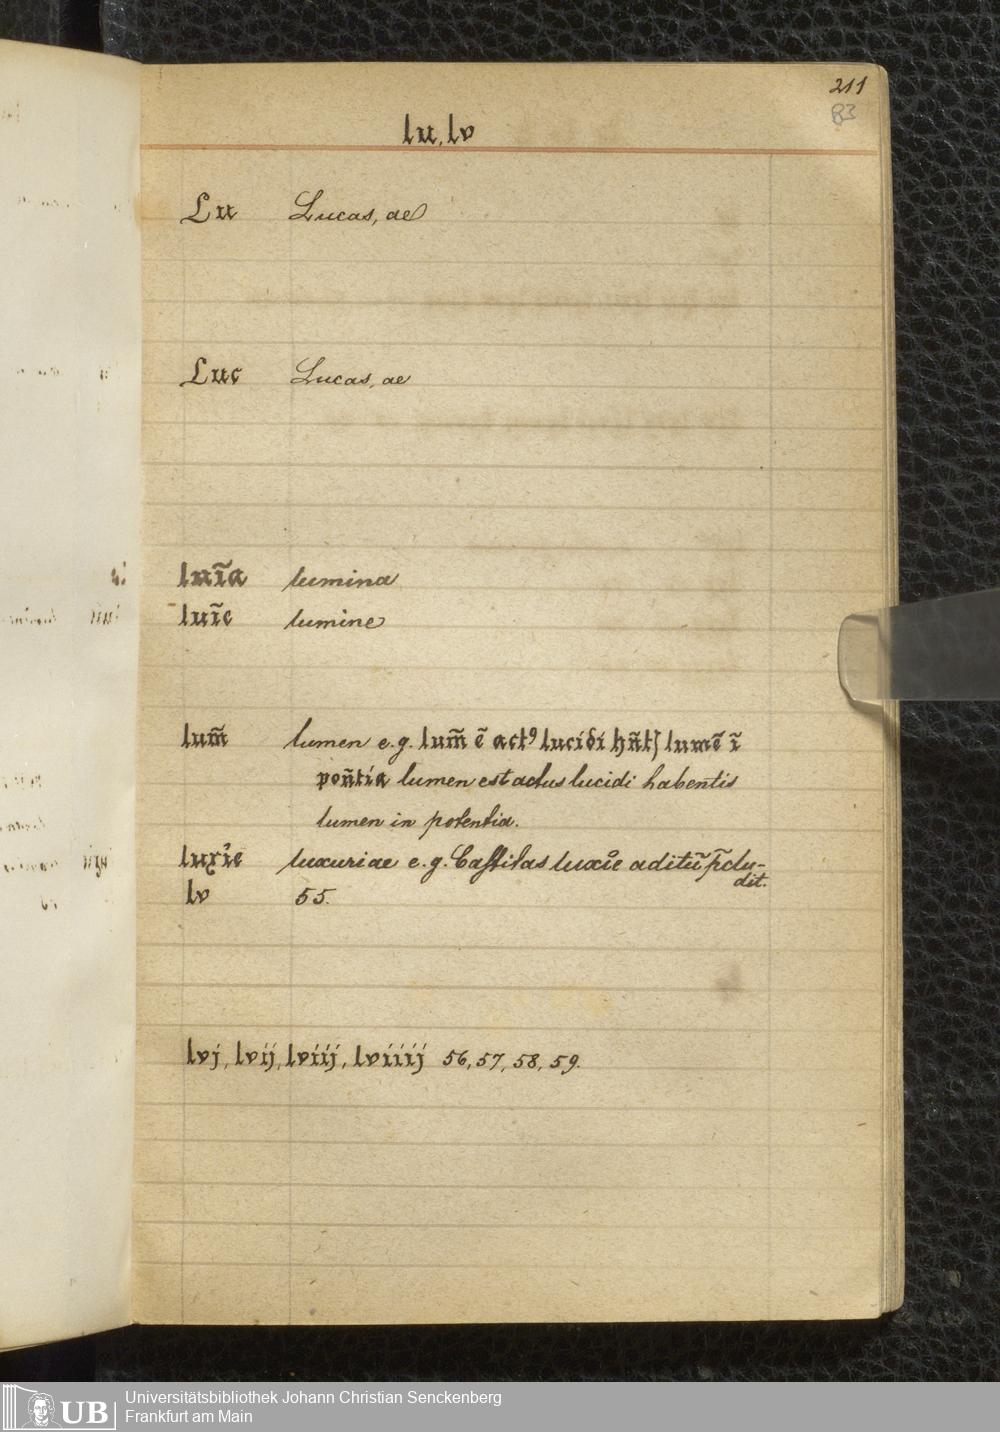 211
83
lu, lv
Lu Lucas, ae
Luc Lucas, ae
luĩa lumina
luĩe lumine
lum̃ lumen e.g. lum̃ ẽ actꝰ lucidi hñtʃ lumẽ ĩ
poñtia lumen est actus lucidi habentis
lumen in potentia.
luxuriae e.g. Caſtitas aditũ p̃clu-
dit.
lv 55.
lvj, lvij, lviij, lviiij 56, 57, 58, 59.
UB
Universitätsbibliothek Johann Christian Senckenberg
Frankfurt am Main